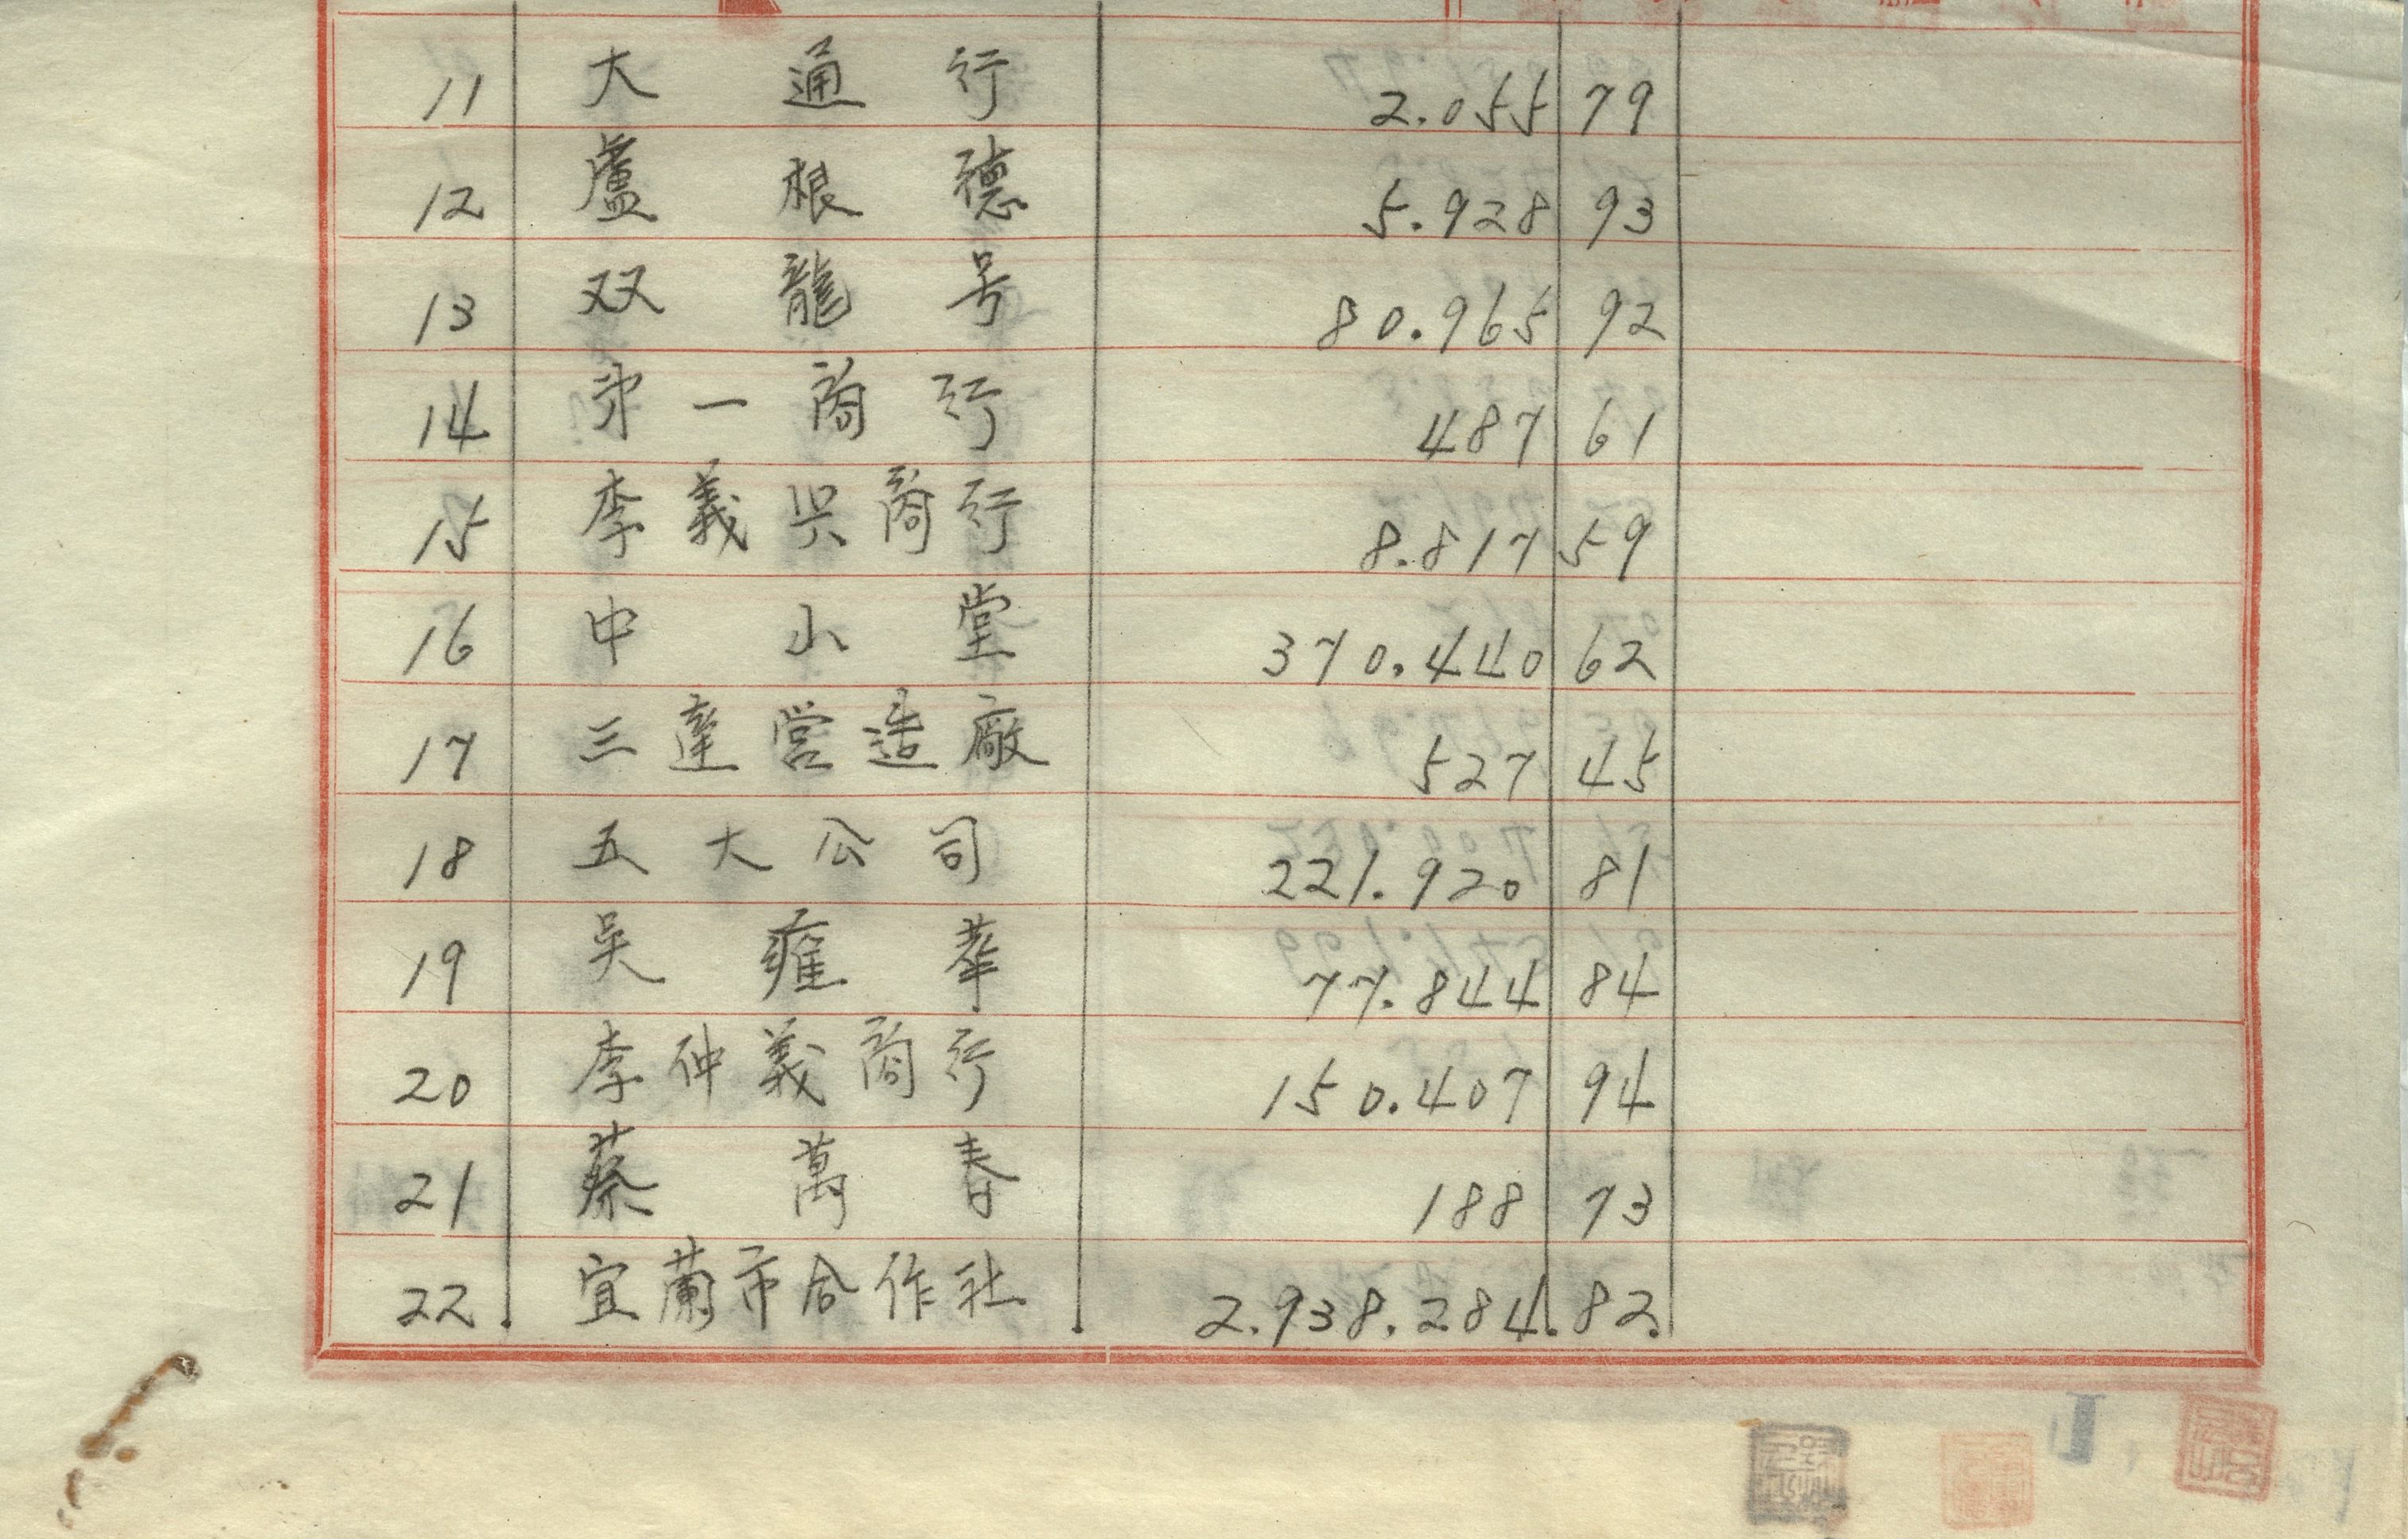 11 大通行 2.055 79
12 盧根德 5.928 93
13 双龍号 80.965 92
14 第一商行 487 61
15 李義兴商行 8.817 59
16 中山堂 370.440 62
17 三達営造廠 527 45
18 五大公司 221.920 81
19 吳 華 77.844 84
20 李仲義商行 150.407 94
21 蔡萬春 188 73
22 宜蘭市合作社 2.938.284.82